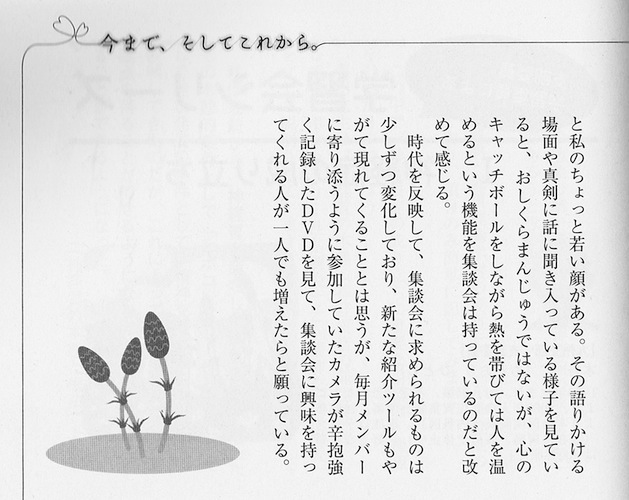 今まで、そしてこれから。
と私のちょっと若い顔がある。その語りかける
場面や真剣に話に聞き入っている様子を見てい
ると、おしくらまんじゅうではないが、心の
キャッチボールをしながら熱を帯びては人を温
めるという機能を集談会は持っているのだと改
めて感じる。
時代を反映して、集談会に求められるものは
少しずつ変化しており、新たな紹介ツールもや
がて現れてくることとは思うが、毎月メンバー
に寄り添うように参加していたカメラが辛抱強
く記録したDVDを見て、集談会に興味を持っ
てくれる人が一人でも増えたらと願っている。